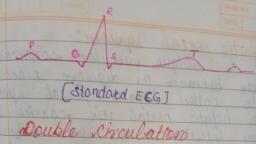 R
P
Q
S
T
[Standard ECG]
Double Circulation